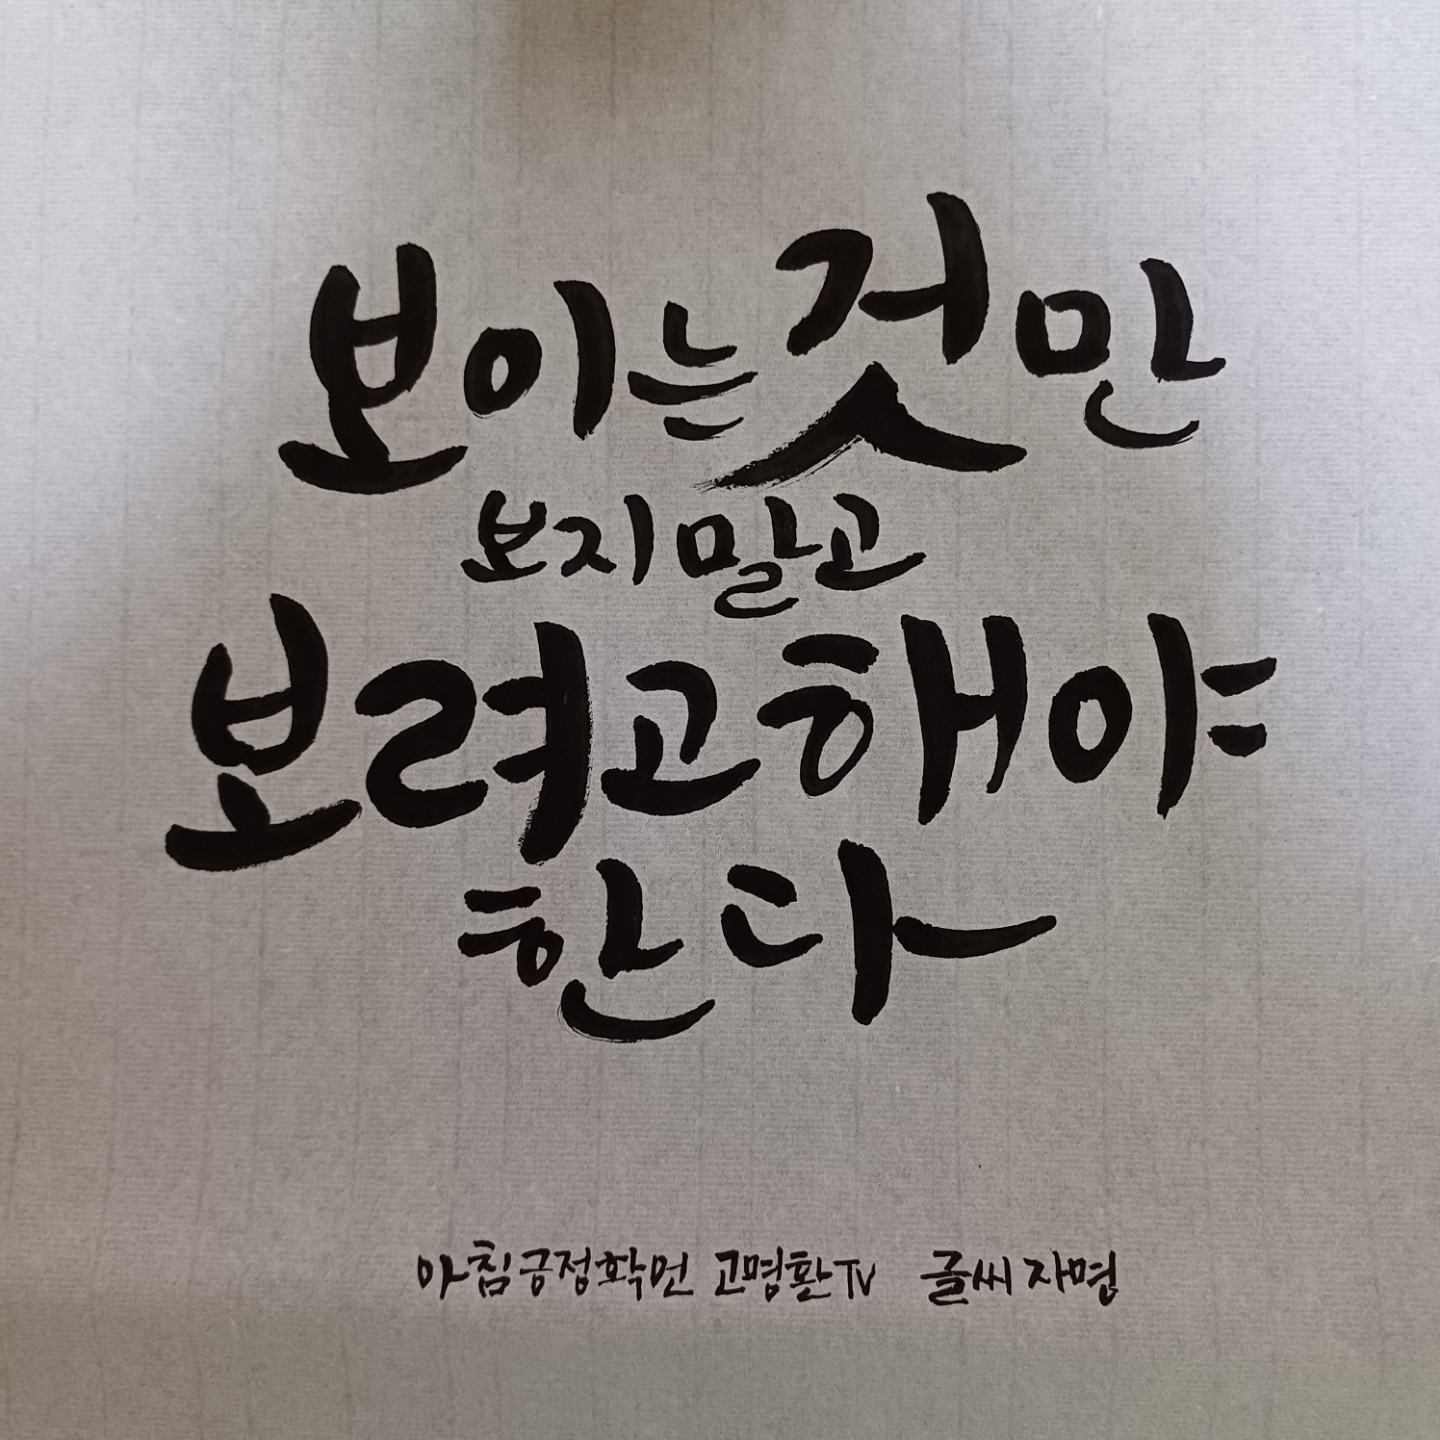 보이는 것만
보지 말고
보려고 해야
한다
아침긍정확언 고명환TV 글씨 자명